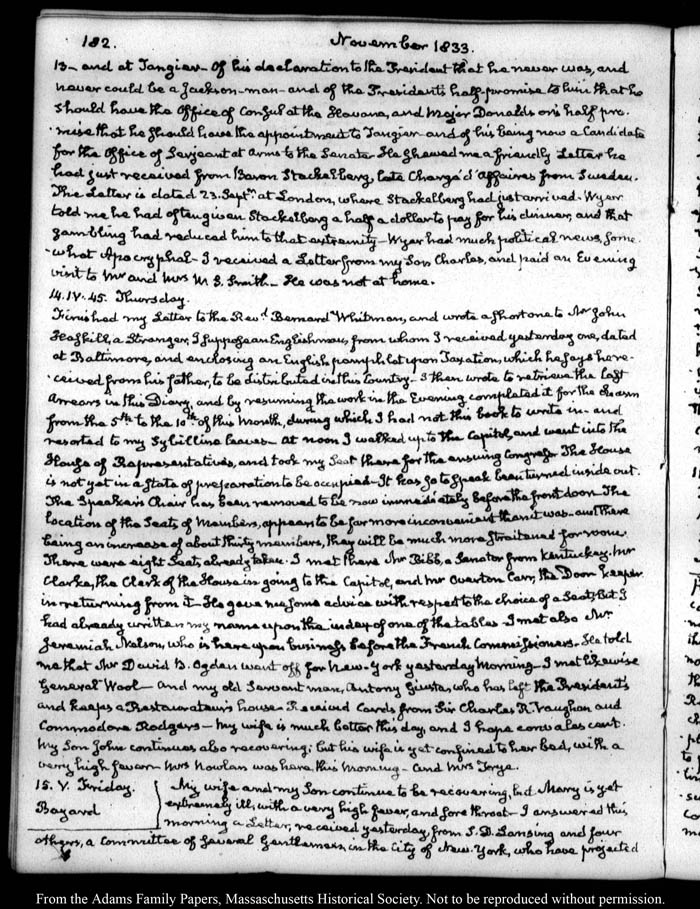 182. November 1833.
13 – and at Tangier – Of his declaration to the President that he never was, and
never could be a Jackson-man – and of the President's half-promise to him that he
should have the Office of Consul at the Havana, and Major Donaldson's half pro-
mise that he should have the appointment to Tangier – and of his being now a Candidate
for the Office of Serjeant at Arms to the Senate. He shewed me a friendly Letter he
had just received from Baron Stackelberg, late Chargé d'Affaires from Sweden.
The Letter is dated 23. Septr. at London, where Stackelberg had just arrived. Wyer
told me he had often given Stackelberg a half a dollar to pay for his dinner, and that
gambling had reduced him to that extremity – Wyer had much political news, some
what Apocryphal – I received a Letter from my Son Charles, and paid an Evening
visit to Mr and Mrs M. S. Smith – He was not at home.
14. IV. 45. Thursday.
Finished my Letter to the Revd. Bernard Whitman, and wrote a short one to Mr John
a Stranger, I suppose an Englishman, from whom I received yesterday one, dated
at Baltimore, and enclosing an English pamphlet upon Taxation, which he says he re-
ceived from his father, to be distributed in this Country – I then wrote to retrieve the last
Arrears in this Diary, and by resuming the work in the Evening completed it for the chasm
from the 5th to the 10th of this Month, during which I had not this book to write in – and
resorted to my Sybilline leaves – At noon I walked up to the Capitol, and went into the
House of Representatives, and took my Seat there for the ensuing Congress. The House
is not yet in a state of preparation to be occupied – It has so to speak been turned inside out.
The Speaker's Chair has been removed to be now immediately before the front door. The
location of the Seats of Members, appears to be far more inconvenient than it was – and there
being an increase of about thirty members, they will be much more straitened for room.
There were eight Seats already taken. I met there Mr Bibb, a Senator from Kentucky. Mr
Clarke, the Clerk of the House in going to the Capitol, and Mr Overton Carr, the Door keeper
in returning from it – He gave me some advice with respect to the choice of a Seat; but I
had already written my name upon the index of one of the tables – I met also Mr
Jeremiah Nelson, who is here upon business before the French Commissioners. He told
me that Mr David B. Ogden went off for New-York yesterday Morning – I met likewise
General Wool – and my old Servant man, Antony Giusta, who has left the President's
and keeps a Restaurateur's house – Received Cards from Sir Charles R. Vaughan and
Commodore Rodgers – My wife is much better this day, and I hope convalescent.
My Son John continues also recovering; but his wife is yet confined to her bed, with a
very high fever – Mrs Nowlan was here this Morning – and Mrs Frye.
15. V. Friday. My wife and my Son continue to be recovering, but Mary is yet
Bayard extremely ill, with a very high fever, and sore throat – I answered this
morning a Letter, received yesterday, from S. D. Lansing and four
others, a Committee of several Gentlemen, in the City of New-York, who have projected
From the Adams Family Papers, Massachusetts Historical Society. Not to be reproduced without permission.